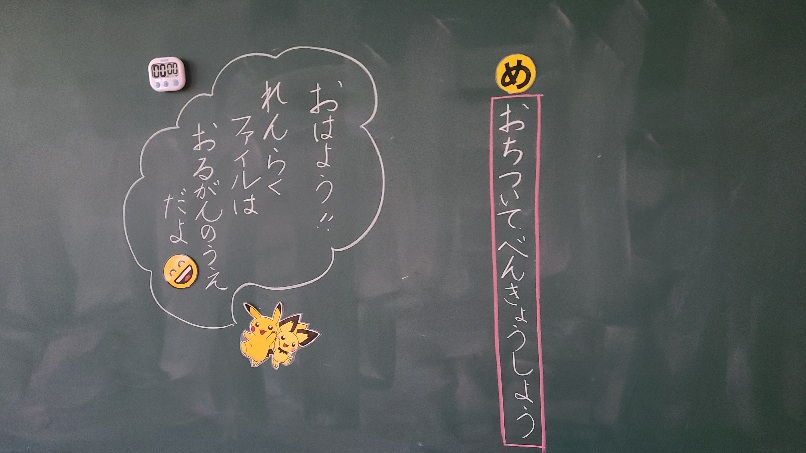 め
おちついてべんきょうしよう
おはよう!!
れんらく
ファイルは
おるがんのうえ
だよ
00:00